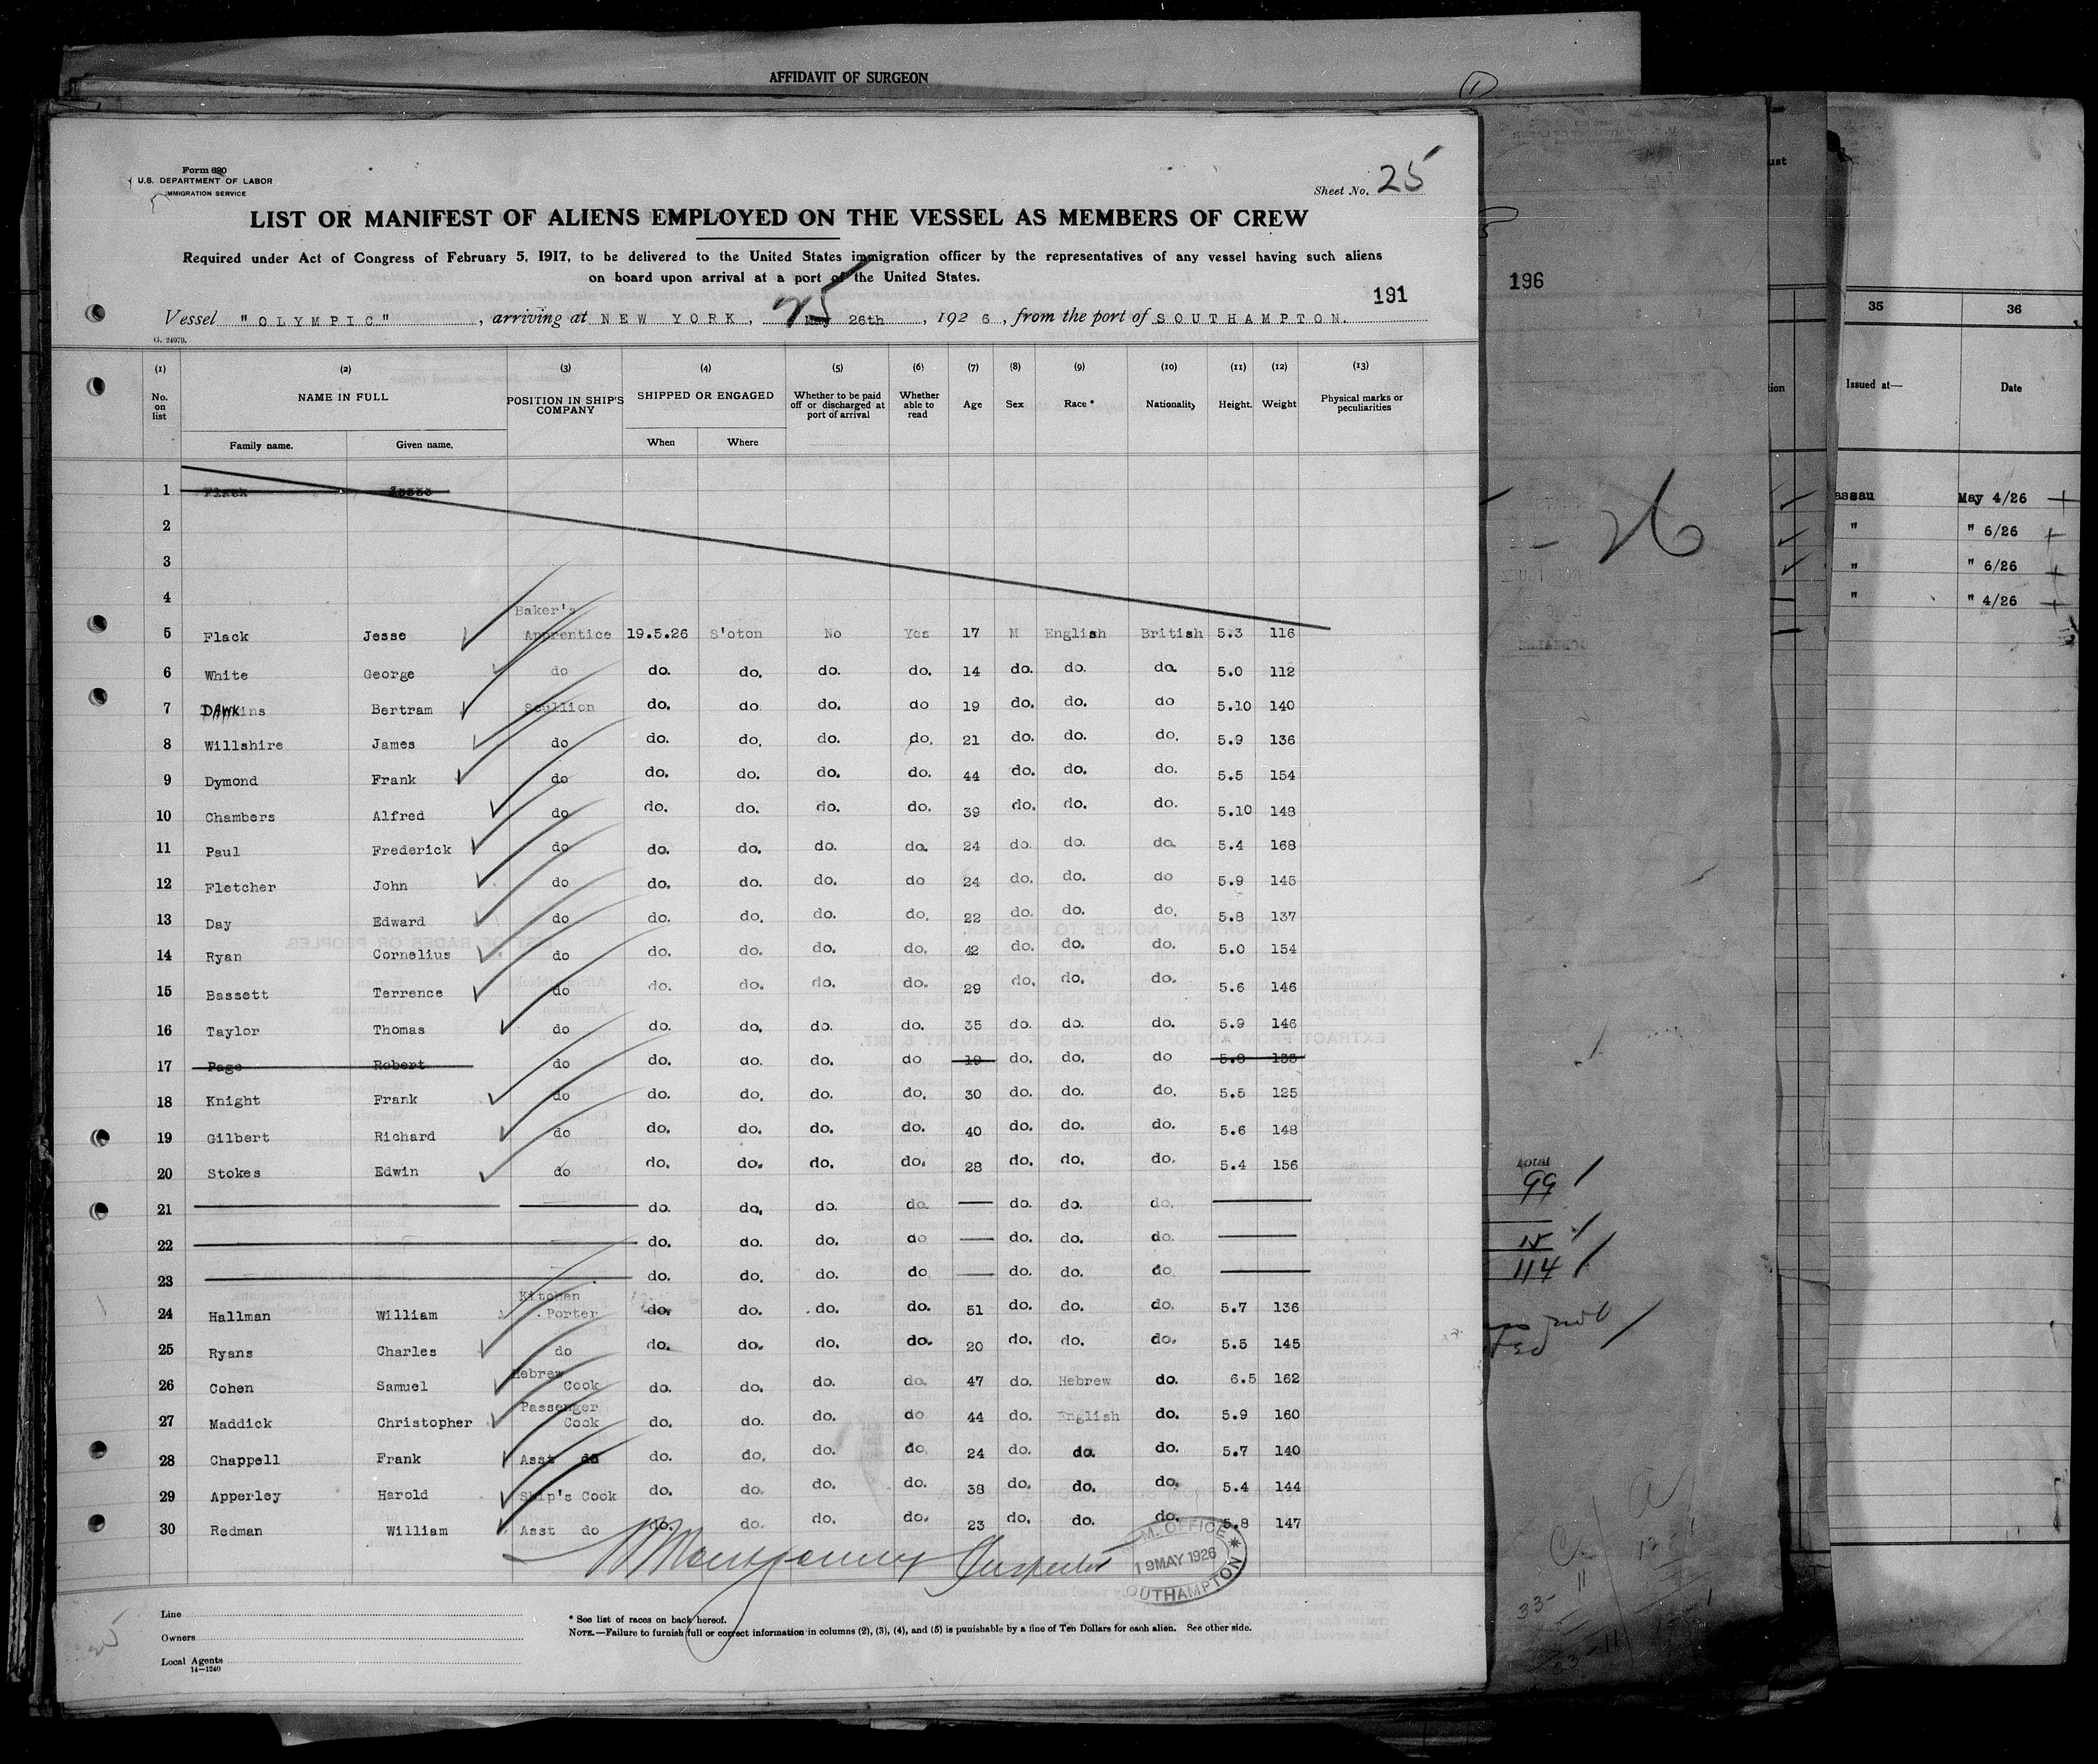 AFFIDAVIT OF SURGEON
1
Form 690
U.S. DEPARTMENT OF LABOR
IMMIGRATION SERVICE
Sheet No. 25
LIST OR MANIFEST OF ALIENS EMPLOYED ON THE VESSEL AS MEMBERS OF CREW
Required under Act of Congress of February 5, 1917, to be delivered to the United States immigration officer by the representatives of any vessel having such aliens
on board upon arrival at a port of the United States.
191
Vessel "OLYMPIC", arriving at NEW YORK, May 26th 25, 1926, from the port of SOUTHAMPTON.
G. 24979.
(1) (2) (3) (4) (5) (6) (7) (8) (9) (10) (11) (12) (13)
No. on list NAME IN FULL POSITION IN SHIP'S COMPANY SHIPPED OR ENGAGED Whether to be paid off or discharged at port of arrival Whether able to read Age Sex Race * Nationality Height. Weight Physical marks or peculiarities
Family name. Given name. When Where
1 Flack Jesse
2
3
4
5 Flack Jesse Baker's Apprentice 19.5.26 S'oton No Yes 17 M English British 5.3 116
6 White George do do. do. do. do. 14 do. do. do. 5.0 112
7 DAWKins Bertram Scullion do. do do. do 19 do. do. do 5.10 140
8 Willshire James do do. do. do. do. 21 do. do. do. 5.9 136
9 Dymond Frank do do. do. do. do. 44 do. do. do. 5.5 154
10 Chambers Alfred do do. do. do. do. 39 do. do. do. 5.10 148
11 Paul Frederick do do. do. do. do. 24 do. do. do. 5.4 168
12 Fletcher John do do. do. do. do 24 do. do. do 5.9 145
13 Day Edward do do. do. do. do. 22 do. do. do. 5.8 137
14 Ryan Cornelius do do. do. do. do. 42 do. do. do. 5.0 154
15 Bassett Terrence do do. do. do. do. 29 do. do. do. 5.6 146
16 Taylor Thomas do do. do. do. do. 35 do. do. do. 5.9 146
17 Page Robert do do. do. do. do 19 do. do. do 5.8 133
18 Knight Frank do do. do. do. do. 30 do. do. do. 5.5 125
19 Gilbert Richard do do. do. do. do. 40 do. do. do. 5.6 148
20 Stokes Edwin do do. do. do. do. 28 do. do. do. 5.4 156
21 do. do. do. do. do. do. do.
22 do. do. do. do do. do. do.
23 do. do. do. do do. do. do
24 Hallman William Kitchen Porter do. do. do. do. 51 do. do. do. 5.7 136
25 Ryans Charles do do. do. do. do. 20 do. do. do. 5.5 145
26 Cohen Samuel Hebrew Cook do. do. do. do. 47 do. Hebrew do. 6.5 162
27 Maddick Christopher Passenger Cook do. do. do. do 44 do. English do. 5.9 160
28 Chappell Frank Asst do do. do. do. do. 24 do. do. do. 5.7 140
29 Apperley Harold Ship's Cook do. do. do. do. 38 do. do. do. 5.4 144
30 Redman William Asst do do. do. do. do. 23 do. do. do. 5.8 147
Montgomery Inspector
M. OFFICE
19 MAY 1926
OUTHAMPTON
Line
Owners
Local Agents
14—1240
* See list of races on back hereof.
NOTE.—Failure to furnish full or correct information in columns (2), (3), (4), and (5) is punishable by a fine of Ten Dollars for each alien. See other side.
196
26
Total
99
15
114
35 36
Issued at— Date
assau May 4/26
" " 6/26
" " 6/26
" " 4/26